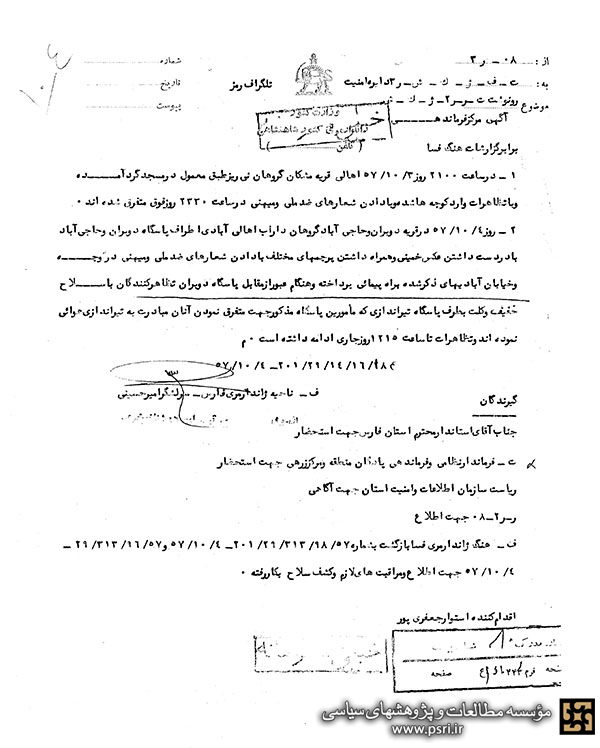 از : ۰۸ ـ ر۲
شماره
به : ت ـ ف ـ ژ ـ ك ـ ش ـ ر۳ دایره امنیت
تلگراف رمز
تاریخ
رونوشت ت ـ ر ـ ۲ ـ ژ ـ ك ـ ش
پیوست
موضوع
آگهی مرکز فرماندهی
وزارت کشور
ژاندارمری کشور شاهنشاهی
برابر گزارشات هنگ فسا
۱ ـ در ساعت ۲۱۰۰ روز ۳/ ۱۰/ ۵۷ اهالی قریه مشکان گروهان نی ریز طبق معمول در مسجد گرد آمـــــده
و با تظاهرات وارد کوچه ها شده و با دادن شعارهای ضد ملی و میهنی در ساعت ۲۳۳۰ روز فوق متفرق شده اند ۰
۲ ـ روز ۴/ ۱۰/ ۵۷ در قریه دوبران و حاجی آباد گروهان داراب اهالی آبادی اطراف پاسگاه دوبران و حاجی آباد
با در دست داشتن عکس خمینی و همراه داشتن پرچمهای مختلف با دادن شعارهای ضد ملی و میهنی در کوچــه
و خیابان آبادیهای ذکر شده براه پیمائی پرداخته و هنگام عبور از مقابل پاسگاه دوبران تظاهرکنندگان با ســـلاح
خفیف و کلت بطرف پاسگاه تیراندازی که مأمورین پاسگاه مذکور جهت متفرق نمودن آنان مبادرت به تیراندازی هوائی
نموده اند و تظاهرات تا ساعت ۱۲۱۵ روز جاری ادامه داشته است ۰ م
۲۰۱/ ۲۹/ ۱۴/ ۱۶/ ۹۸۴ ـ ۴/ ۱۰/ ۵۷
ف ـ ناحیه ژاندارمری فارس ـ سرلشگر امیرحسینی
گیرندگان
جناب آقای استاندار محترم استان فارس جهت استحضار
ت ـ فرماندار نظامی و فرماندهی پادگان منطقه و مرکز زرهی جهت استحضار
ریاست سازمان اطلاعات و امنیت استان جهت آگاهی
ر ـ ر ۲ ـ ۰۸ جهت اطلاع
ف ـ هنگ ژاندارمری فسا بازگشت بشماره ۵۷/ ۹۸/ ۳۱۳/ ۲۹/ ۲۰۱ ـ ۴/ ۱۰/ ۵۷ و ۵۷/ ۱۶/ ۳۱۳/ ۲۹ ـ
۴/ ۱۰/ ۵۷ جهت اطلاع و مراقبت های لازم و کشف سلاح بکار رفته ۰
اقدام کننده استوار جعفری پور
صفحه
مؤسسه مطالعات و پژوهشهای سیاسی
www.psri.ir